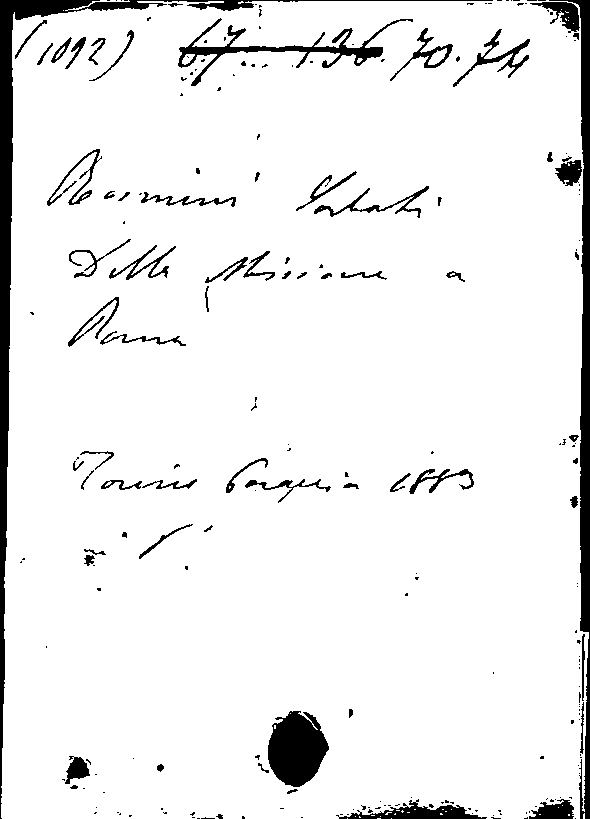 (1092) 67...136. 70.74
Rosmini Serbati
Della Missione a
Roma
Torino Paravia 1883